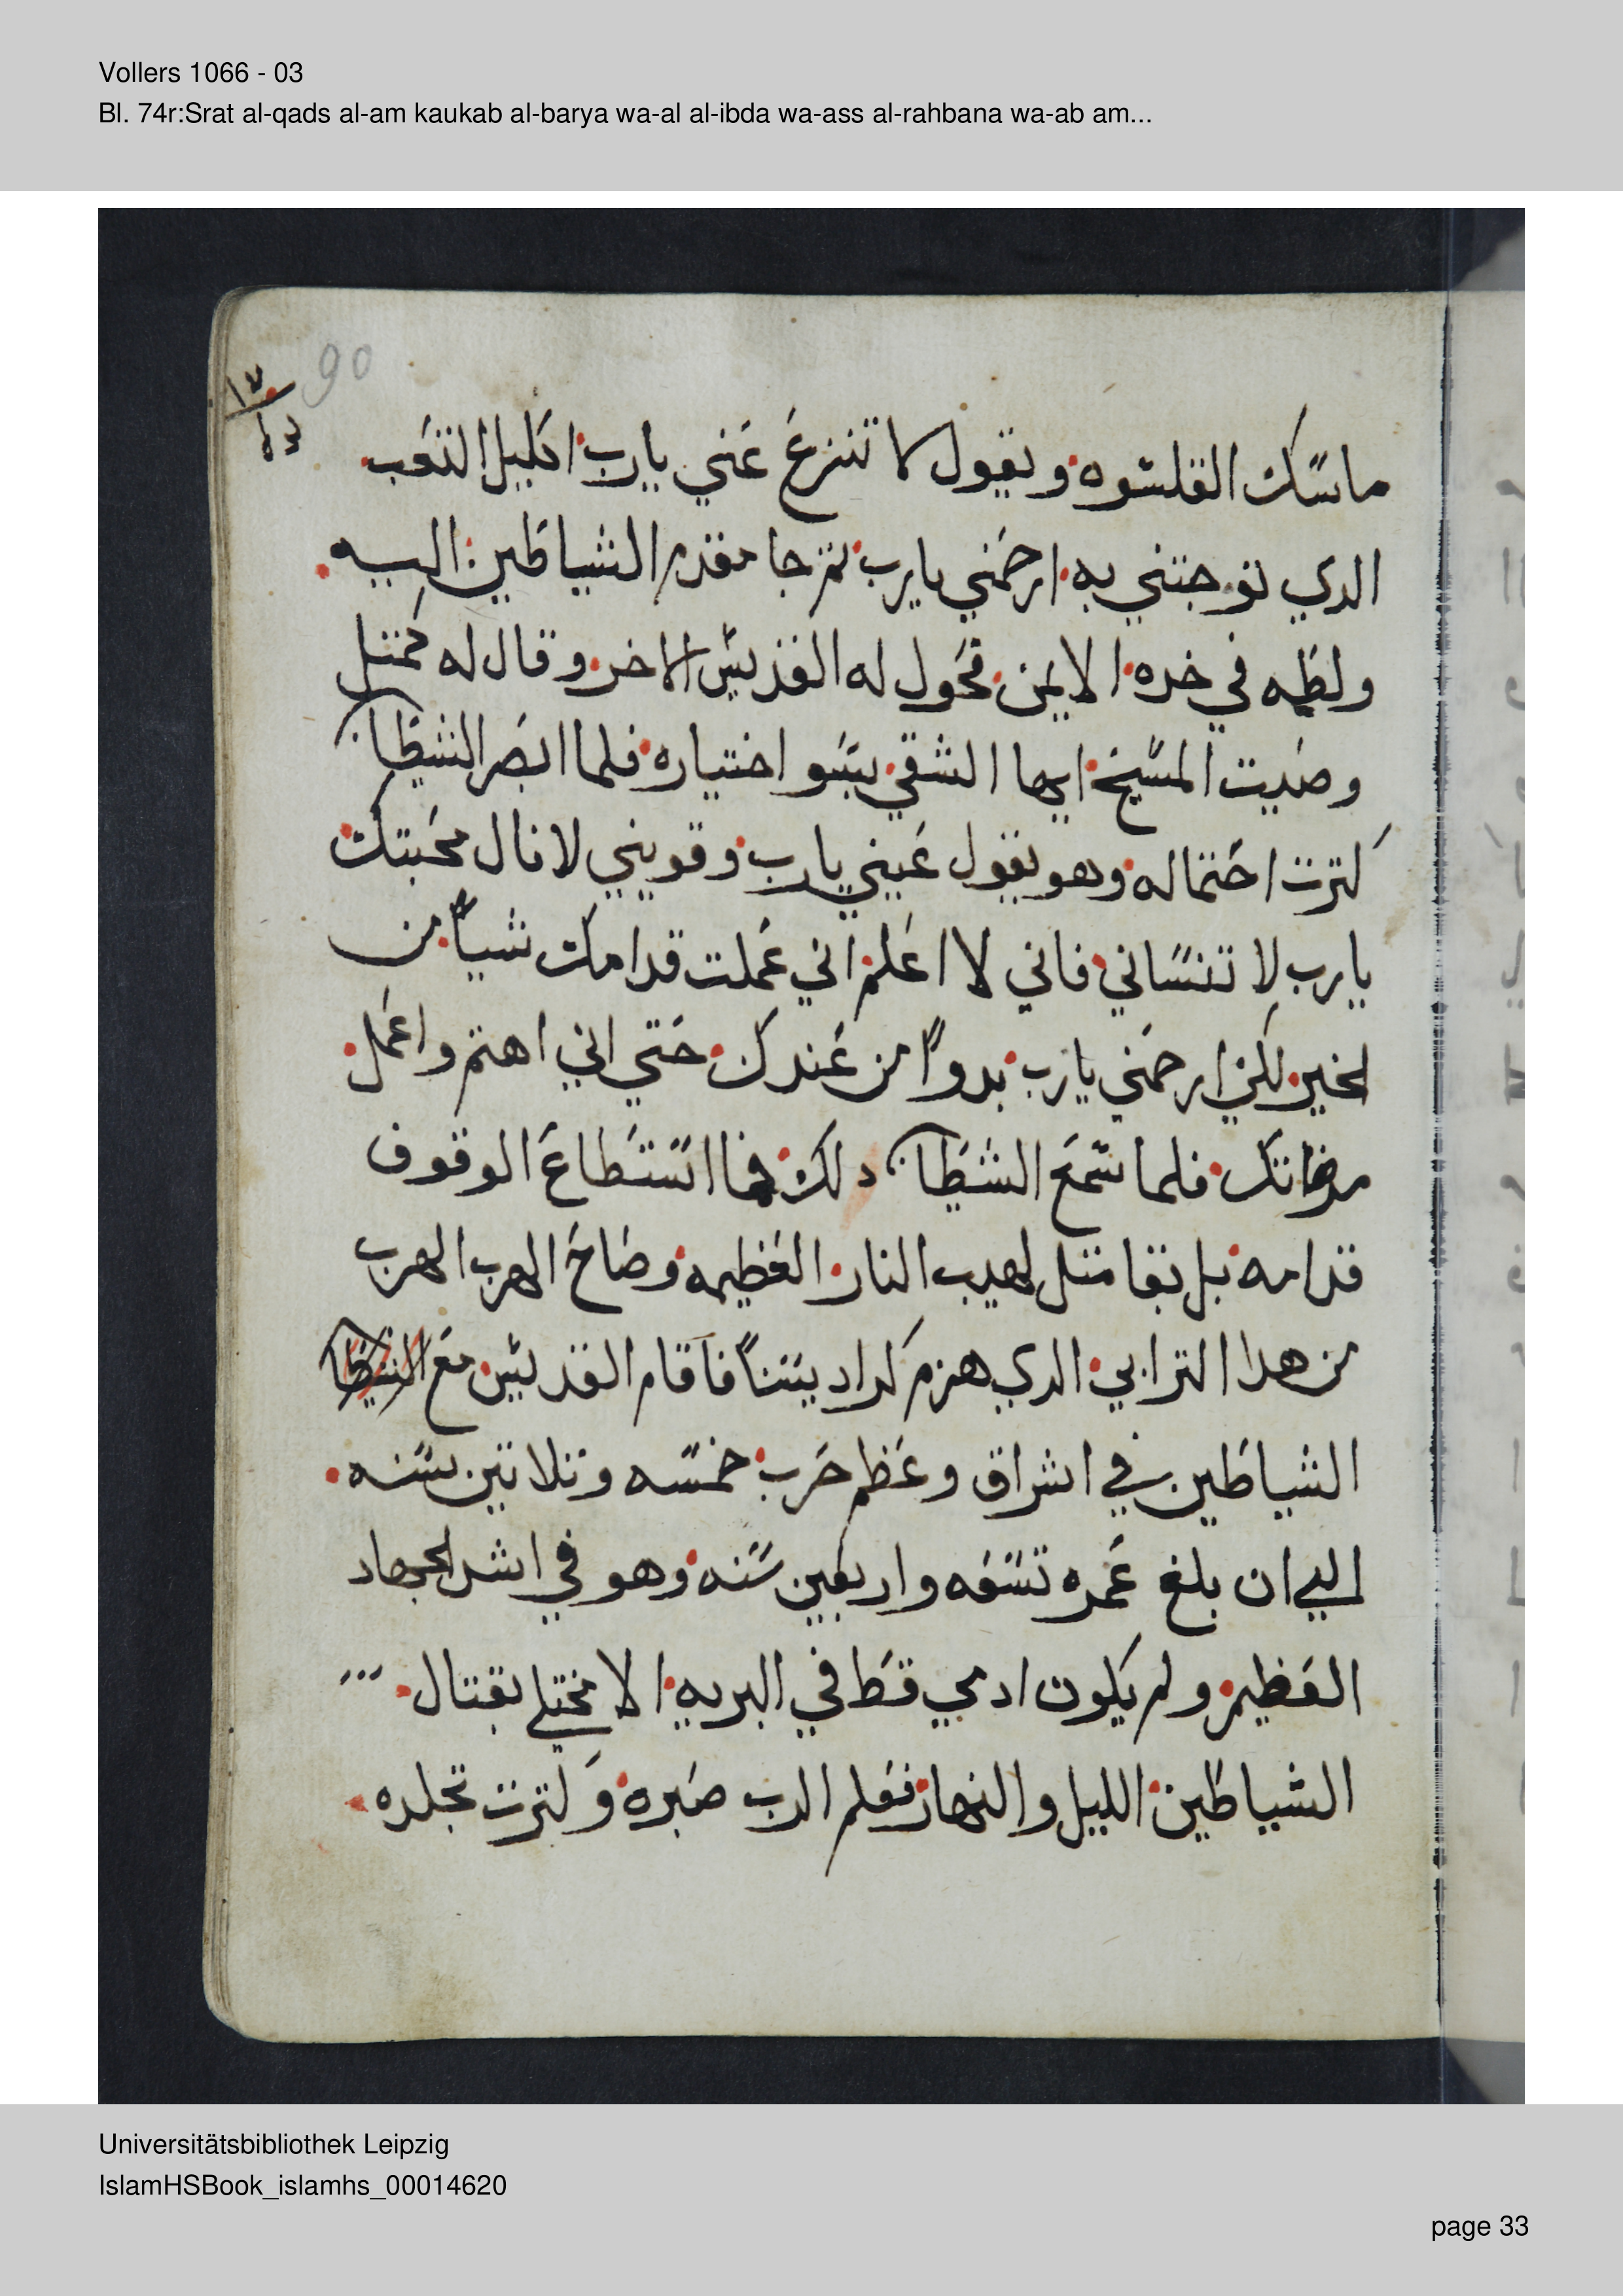 Vollers 1066 - 03
Bl. 74r:Srat al-qads al-am kaukab al-barya wa-al al-ibda wa-ass al-rahbana wa-ab am...
90
ماسك القلسوه ويقول لا تنزع عني يارب اكليل التعب
الدي توجتني به ارحمني يارب تم جا مقدم الشياطين اليه
ولطمه في خده الايمن فحول له القديس الاخر وقال له كمتل
وصيت المسيح ايها الشقي بيسو اختياره فلما ابصر الشيطان
كترت احتماله وهو يقول عيني يارب وقويني لانال محبتك
يارب لا تنساني فاني لا اعلم اني عملت قدامك شياً من
الخير لكن ارحمني يارب بدواً من عندك حتي اني اهتم واعمل
مرضاتك فلما سمع الشيطان دلك فما استطاع الوقوف
قدامه بل بقا متل لهيب النار العظيمه وصاح الهرب الهرب
من هدا الترابي الدي هزم اراديسناً فاقام القديس مع
الشياطين في اشراق وعظم حرب خمسه وتلاتين سنه
الي ان بلغ عمره تسعه واربعين سنه وهو في اشد الجهاد
العظيم ولم يكون ادمي قط في البريه الا مختلي بقتال
الشياطين الليل والنهار فعلم الرب صبره وكترت تجلده
Universitätsbibliothek Leipzig
IslamHSBook_islamhs_00014620
page 33